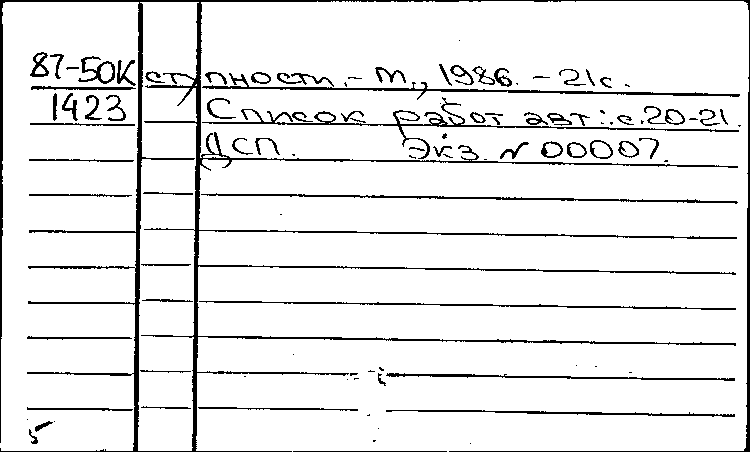 87-50К ступности. - М., 1986. - 21с.
1423 Список работ авт.: с.20-21.
ДСП. Экз. № 00007.
5